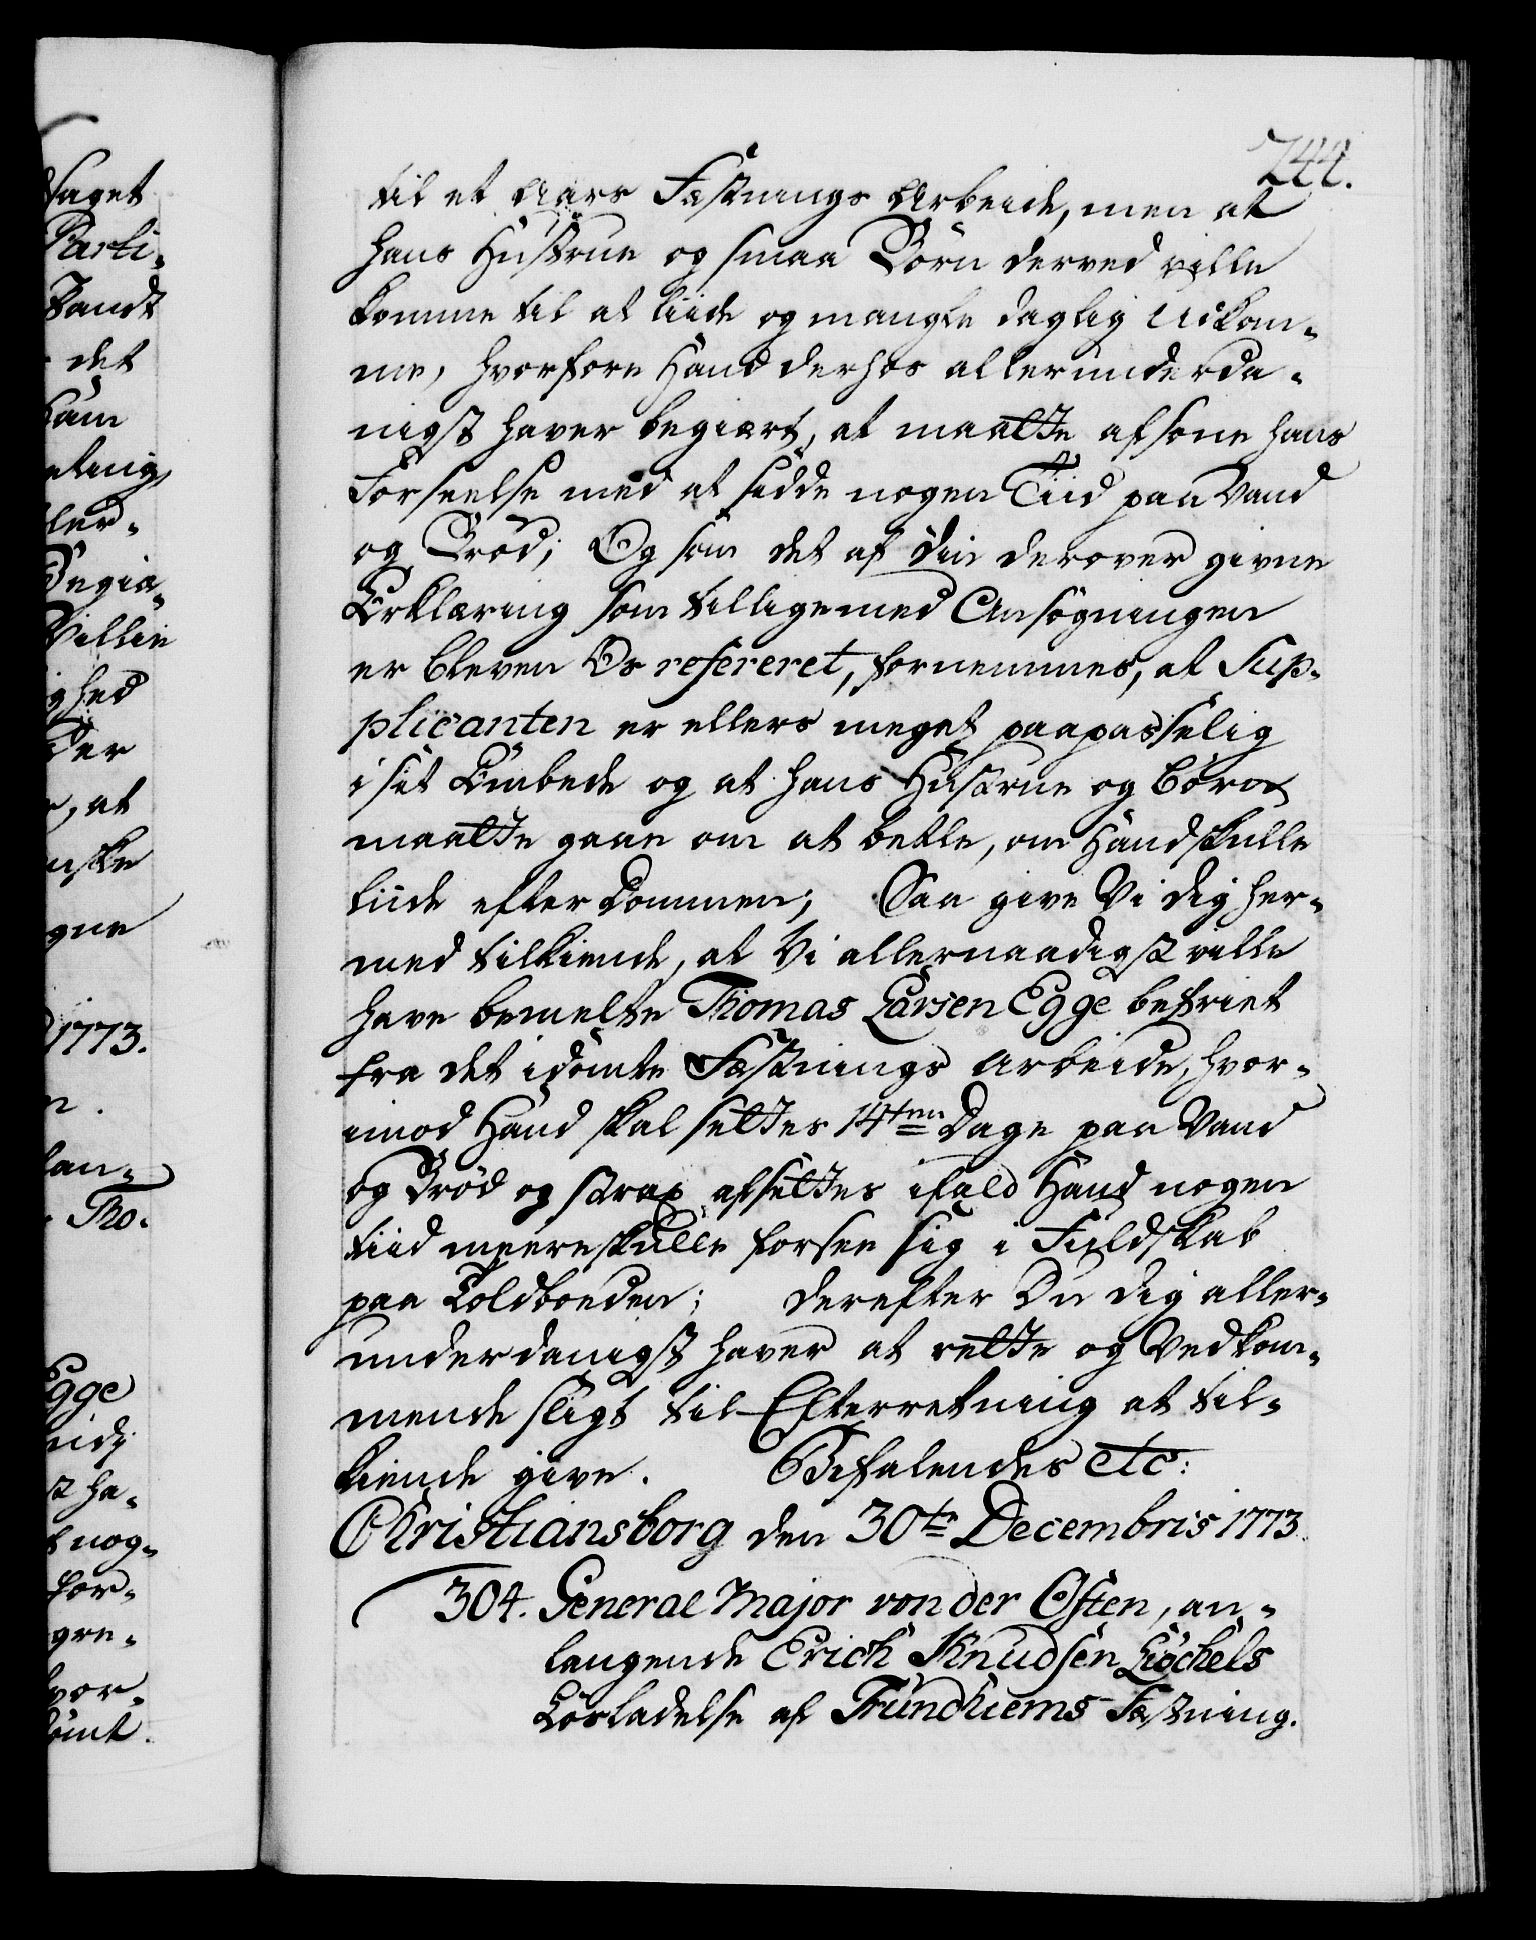 244.
til et Aars Fæstnings Arbeide, men at
hans Hustrue og smaa Börn derved ville
komme til at liide og mangle daglig Udkom-
me, hvorfore Hand derhos allerunderda-
nigst haver begiært, at maatte afsone hans
Forseelse med at sidde nogen Tiid paa Vand
og Bröd; Og som det af din derover givne
Erklæring som tilligemed Ansögningen
er bleven Os refereret, fornemmes, at Sup-
plicanten er ellers meget paapasselig
i sit Embede og at hans Hustrue og Börn
maatte gaae om at betle, om Hand skulle
liide efter Dommen; Saa give Vi dig her-
med tilkiende, at Vi allernaadigst ville
have bemelte Thomas Larsen Egge befriet
fra det idömte Fæstnings Arbeide, hvor-
imod Hand skal settes 14ten Dage paa Vand
og Bröd og strax afsettes ifald Hand nogen
tiid meere skulle forsee sig i Fuldskab
paa Toldboeden; derefter Du dig aller-
underdanigst haver at rette og Vedkom-
mende sligt til Efterretning at til-
kiende give. Befalendes etc:
Christiansborg den 30te Decembris 1773.
304. General Major von der Osten, an-
langende Erich Knudsen Liöchels
Lösladelse af Trundhiems Fæstning.
saget
Parti-
det
eting
ler-
Begiæ-
Villie
ghed
der
r, at
nske
gne
1773.
n.
lan-
Tho-
Egge
t ha-
nog-
for-
gre-
hvor-
dömt.